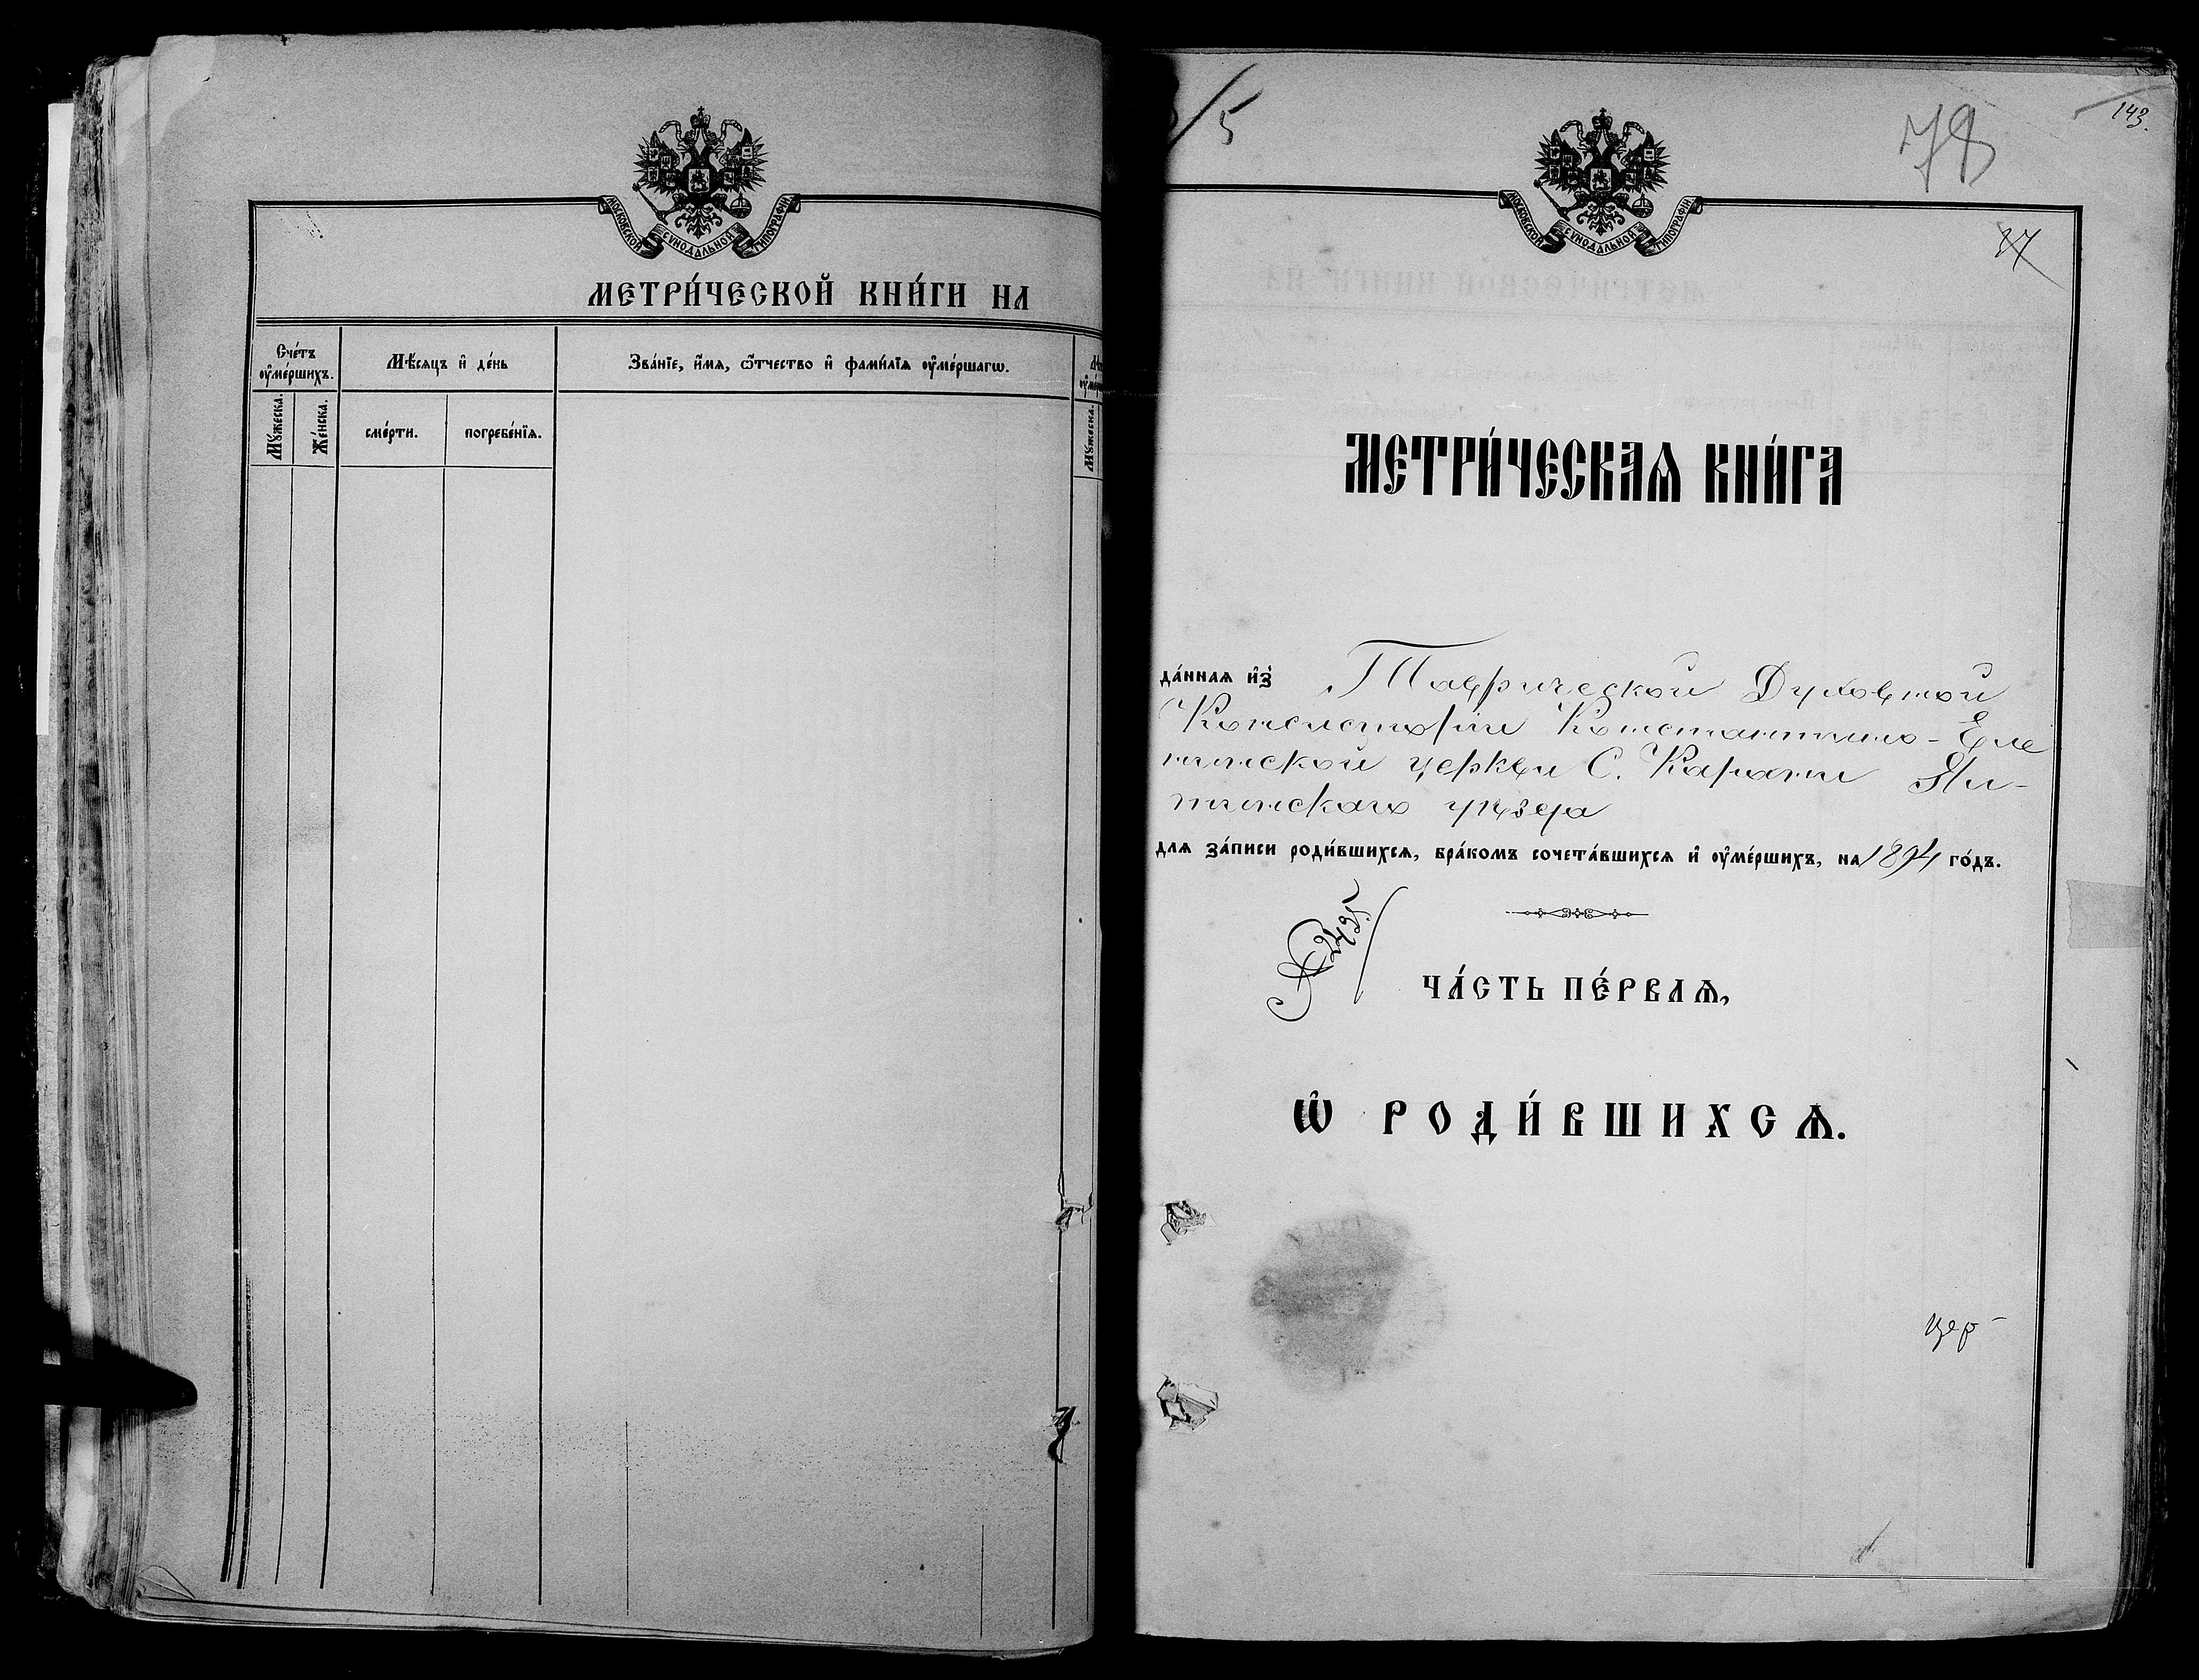 МОСКОВСКОЙ СѴНОДАЛЬНОЙ ТИПОГРАФІИ
МЕТРИ́ЧЕСКОЙ КНИ́ГИ НА
Сче́тъ ᲂу҆ме́ршихъ.
Мѣ́сяцъ и҆ де́нь
Зва́нїе, и҆́мя, ѻ҆́тчество и҆ фами́лїя ᲂу҆ме́ршагѡ.
Мꙋ́жеска.
Же́нска.
сме́рти.
погребе́нїя.
Мꙋ́жеска.
/5
78
143.
МОСКОВСКОЙ СѴНОДАЛЬНОЙ ТИПОГРАФІИ
37
МЕТРИ́ЧЕСКАѦ КНИ́ГА
да́нная и҆з̾ Таврической Духовной
Консисторіи Константино-Еле
нинской церкви С. Карани Ял-
тинскаго уѣзда
для за́писи роди́вшихся, бра́комъ сочета́вшихся и҆ ᲂу҆ме́ршихъ, на 1894 го́дъ.
№ 2435.
ЧА́СТЬ ПЕ́РВАѦ,
Ѡ҆ РОДИ́ВШИХСѦ.
цер-